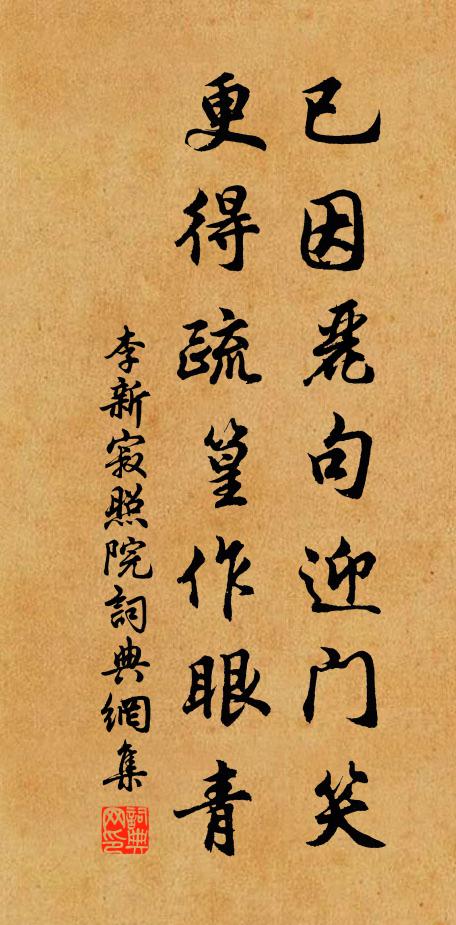 已因麗句迎门笑
更得疏篁作眼青
李新寂照院詞典網集
詞典网印